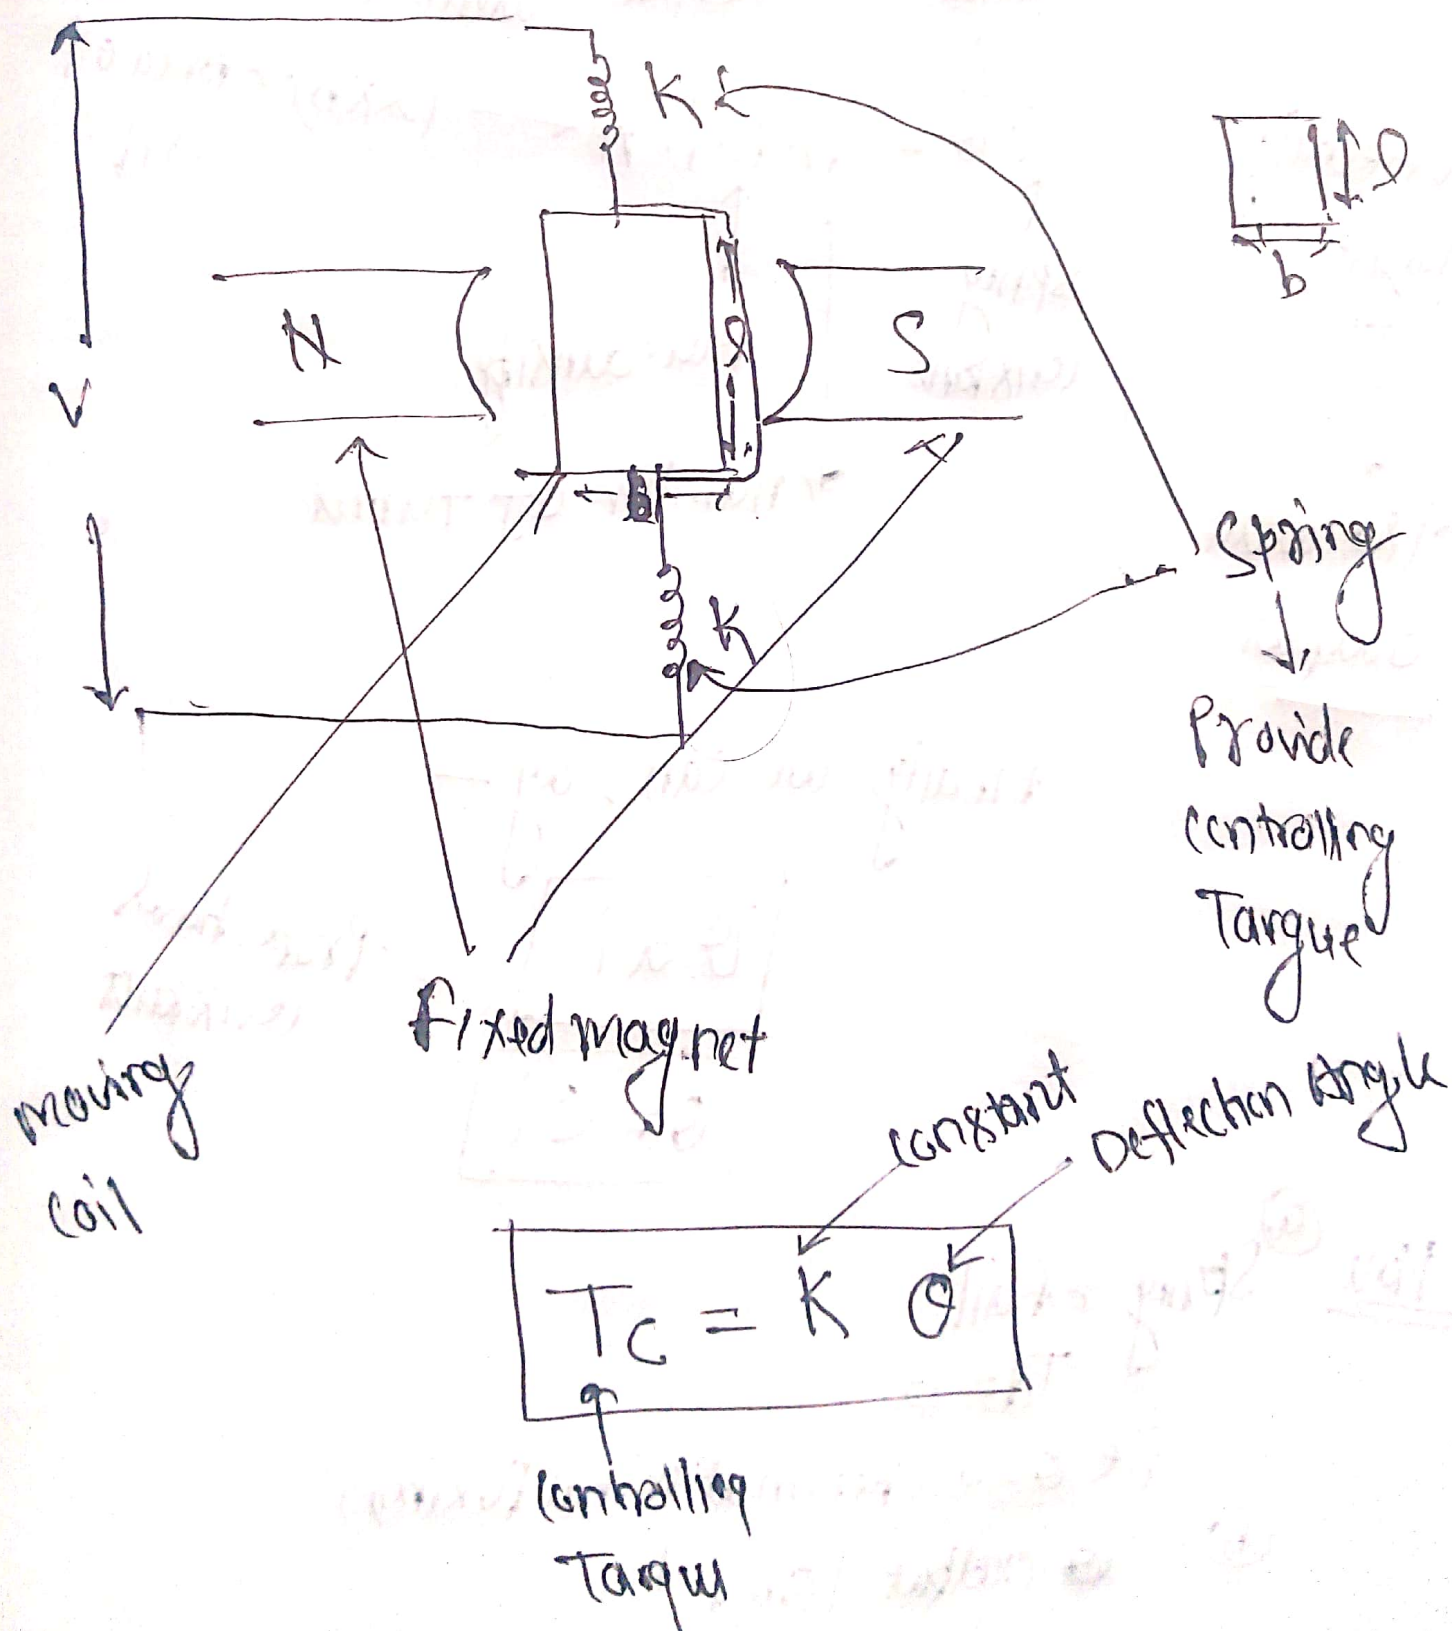 K
l
b
N
l
S
V
b
Spring
K
Provide
Controlling
Targue
Fixed magnet
moving
coil
constant
Deflection Angle
Tc = K θ
Controlling
Tarque